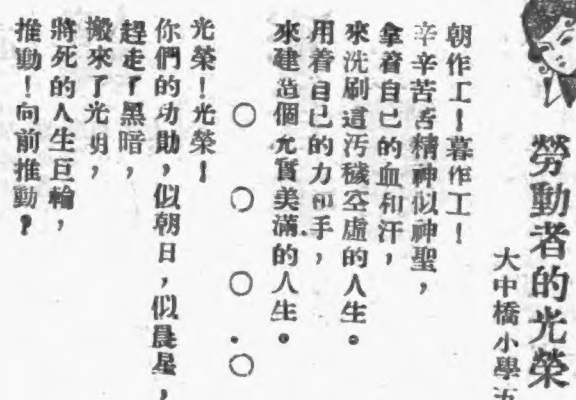 勞動者的光榮
大中橋小學五
朝作工！暮作工！
辛辛苦苦精神似神聖，
拿着自己的血和汗，
來洗刷這汚穢空虛的人生。
用着自己的力和手，
來建造個充實美滿的人生。
○ ○ ○ ○
光榮！光榮！
你們的功勛，似朝日，似晨星，
趕走了黑暗，
搬來了光明，
將死的人生巨輪，
推動！向前推動！